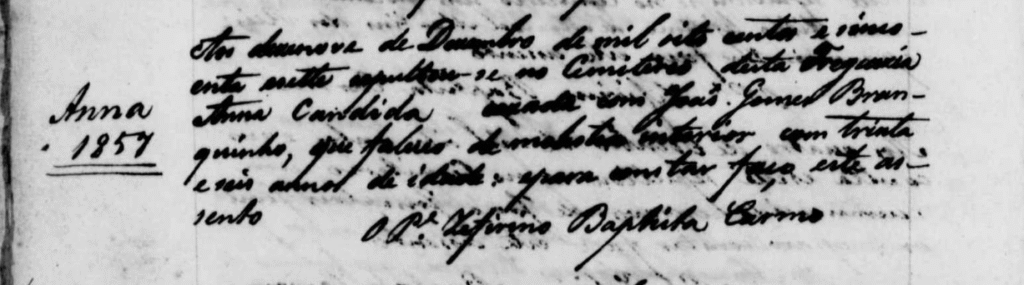 Anna
1857
Aos desenove de Desembro de mil oito centos e sinco-
enta esette sepultou-se no Cemiterio desta Freguesia
Anna Candida casada com João Gomes Bran-
quinho, que faleceo de molestia interior com trinta
e seis annos de idade: epara constar faço este as-
sento
O Pe Zeferino Baptista Carmo